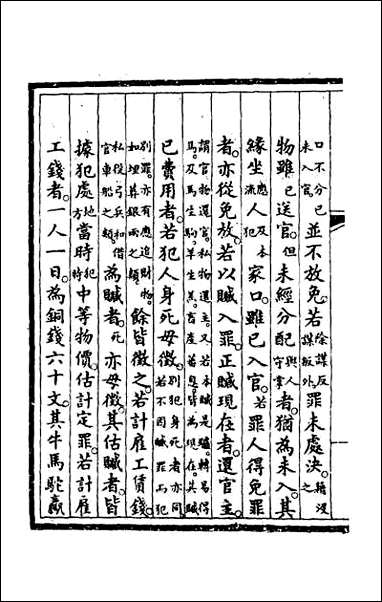 口不分已未入官並不放免若除謀反謀叛外罪未處決籍沒之
物雖已送官但未經分配與人守掌者猶為未入其
緣坐應流人及本犯家口雖已入官若罪人得免罪
者亦從免放若以贓入罪正贓現在者還官主
謂官物還官私物還主又若本贓是驢轉易得
馬及馬生駒羊生羔畜產蕃息皆為現在其贓
已費用者若犯人身死毋徵別犯身死者亦同若不因贓罪而犯
別罪亦有應追財物如埋葬銀兩之類餘皆徵之若計雇工賃錢
私役弓兵和借官車船之類為贓者死亦毋徵其估贓者皆
據犯處地方當時犯時中等物價估計定罪若計雇
工錢者一人一日為銅錢六十文其牛馬駝驘